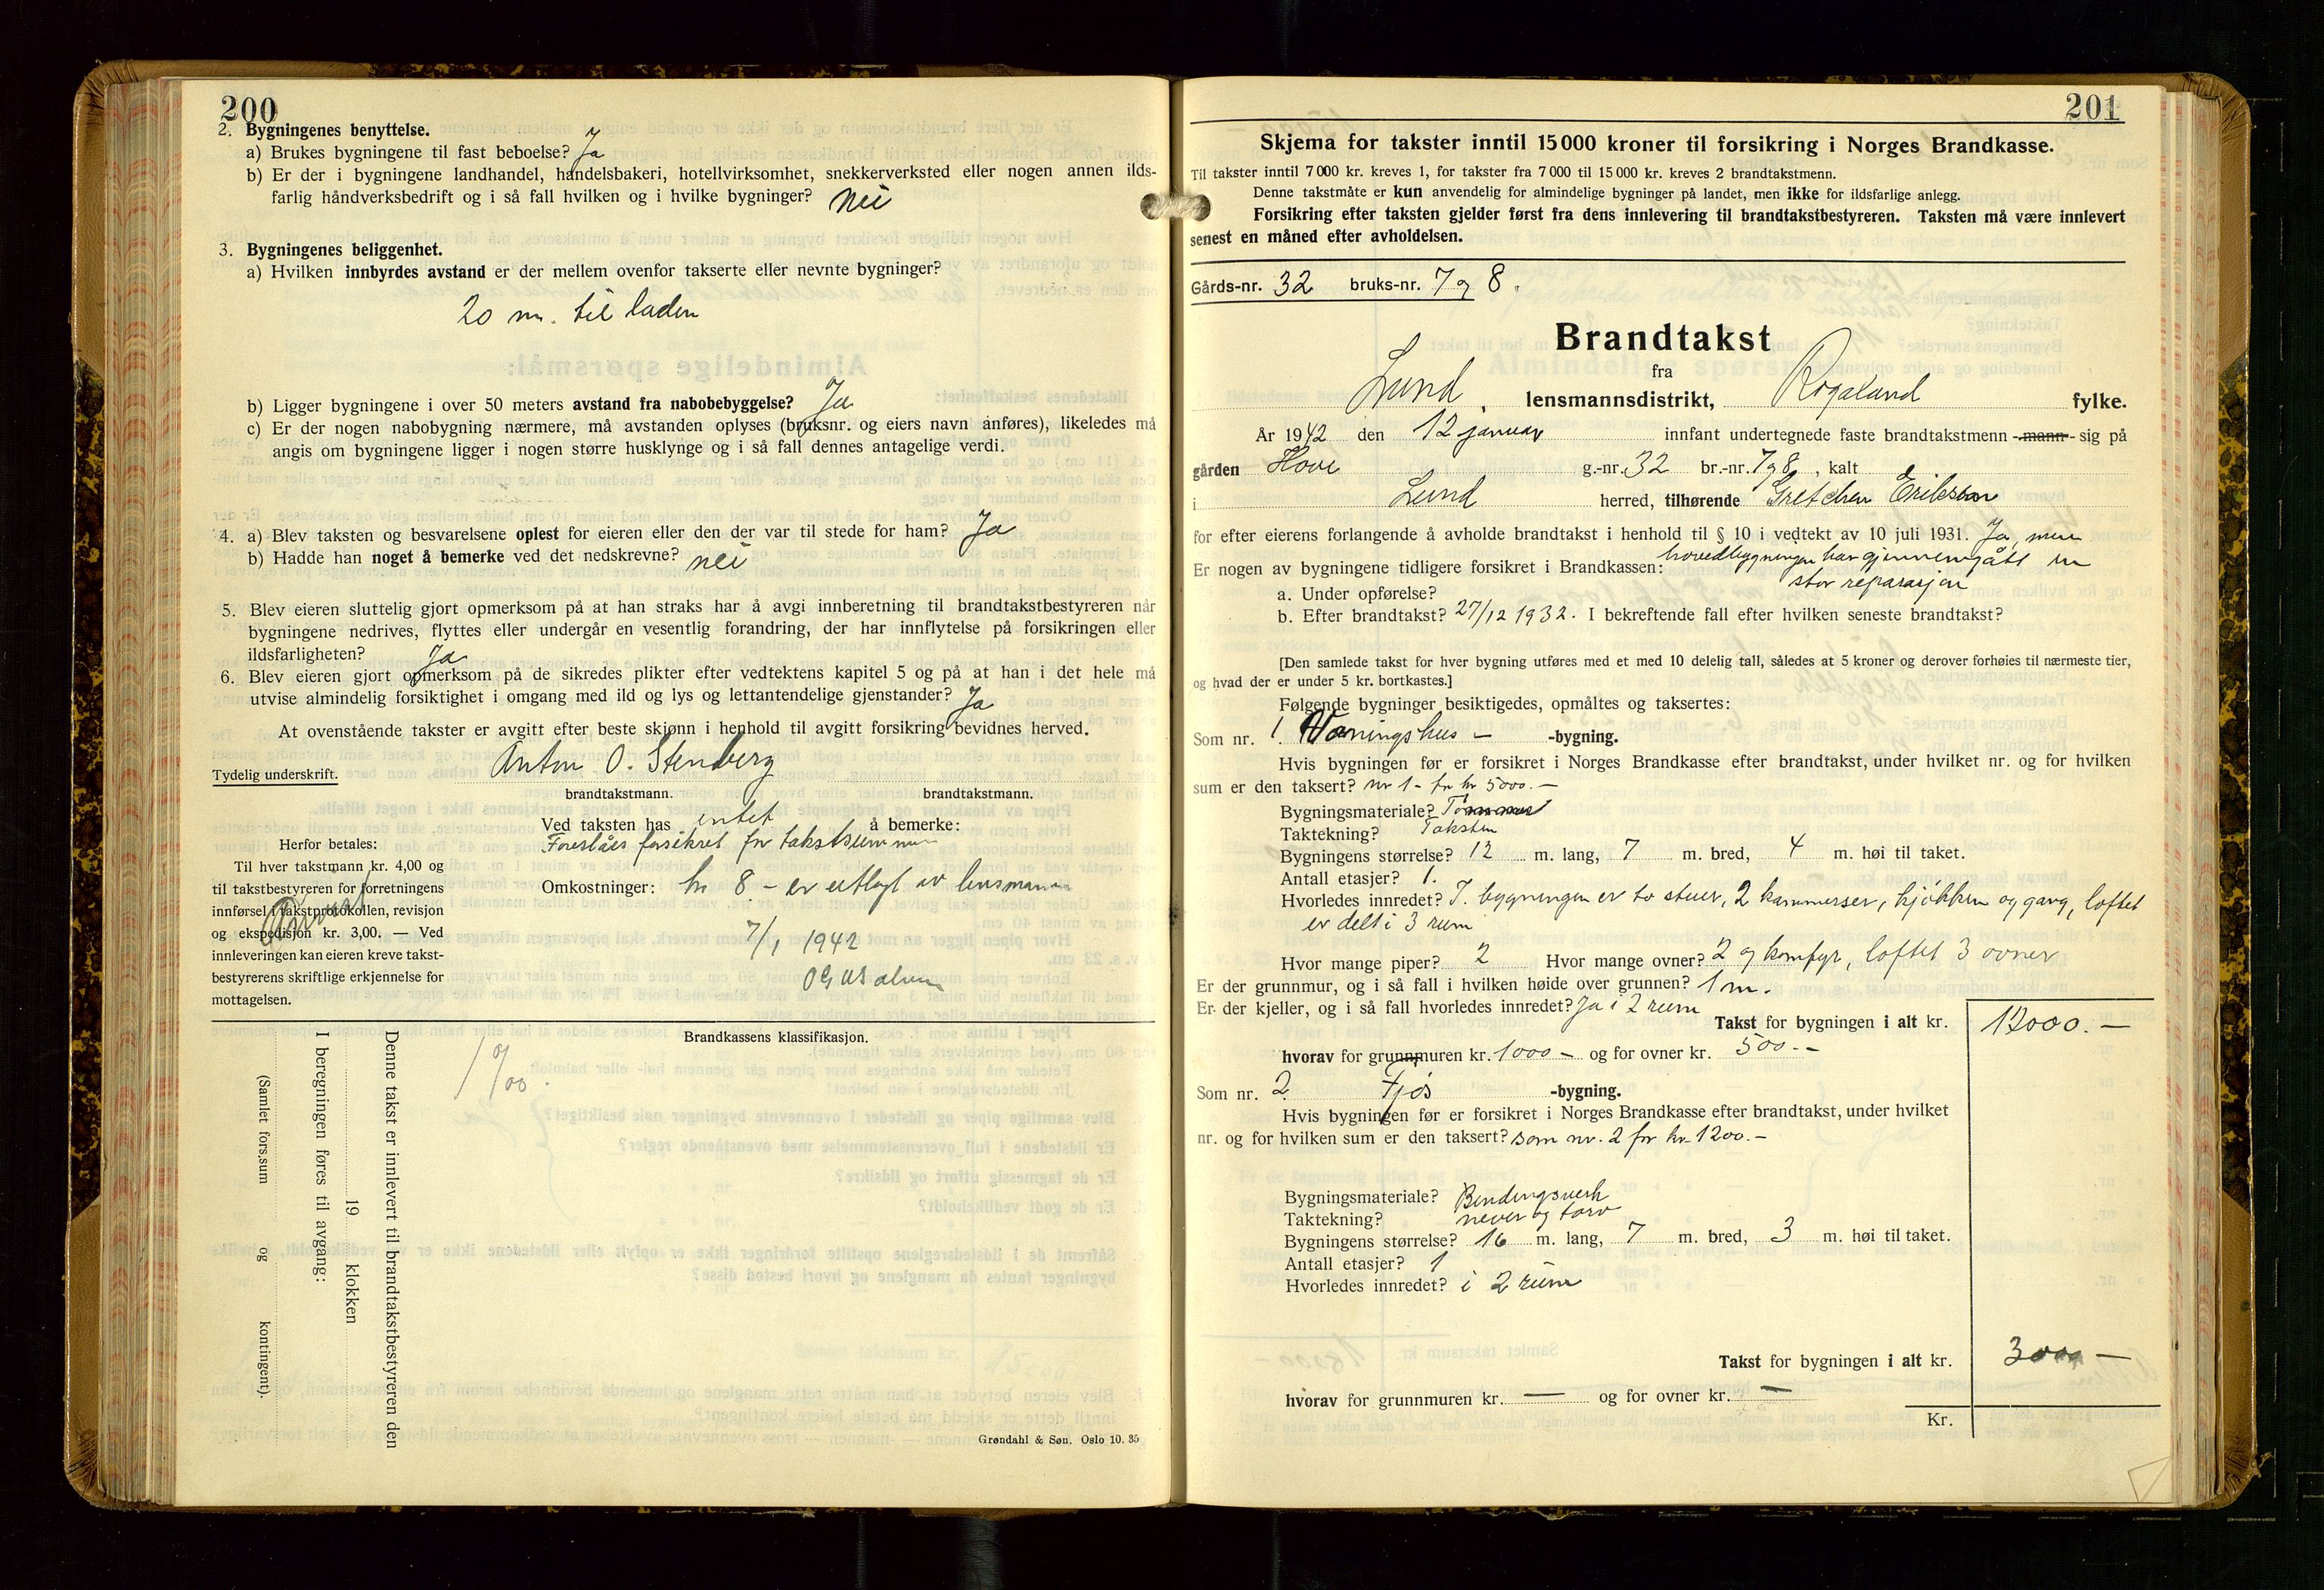 200
2. Bygningenes benyttelse.
a) Brukes bygningene til fast beboelse? Ja
b) Er der i bygningene landhandel, handelsbakeri, hotellvirksomhet, snekkerverksted eller nogen annen ilds-
farlig håndverksbedrift og i så fall hvilken og i hvilke bygninger? nei
3. Bygningenes beliggenhet.
a) Hvilken innbyrdes avstand er der mellem ovenfor takserte eller nevnte bygninger?
20 m. til laden
b) Ligger bygningene i over 50 meters avstand fra nabobebyggelse? Ja
c) Er der nogen nabobygning nærmere, må avstanden oplyses (bruksnr. og eiers navn anføres), likeledes må
angis om bygningene ligger i nogen større husklynge og i så fall dennes antagelige verdi.
4. a) Blev taksten og besvarelsene oplest for eieren eller den der var til stede for ham? Ja
b) Hadde han noget å bemerke ved det nedskrevne? nei
5. Blev eieren sluttelig gjort opmerksom på at han straks har å avgi innberetning til brandtakstbestyreren når
bygningene nedrives, flyttes eller undergår en vesentlig forandring, der har innflytelse på forsikringen eller
ildsfarligheten? Ja
6. Blev eieren gjort opmerksom på de sikredes plikter efter vedtektens kapitel 5 og på at han i det hele må
utvise almindelig forsiktighet i omgang med ild og lys og lettantendelige gjenstander? Ja
At ovenstående takster er avgitt efter beste skjønn i henhold til avgitt forsikring bevidnes herved.
Anton O. Stenberg
Tydelig underskrift.
brandtakstmann. brandtakstmann.
Ved taksten has intet å bemerke:
Foreslåes forsikret for takstsummen
Omkostninger: kr 8 - er utlagt av lensmannen
7/1 1942
Herfor betales:
Til hver takstmann kr. 4,00 og
til takstbestyreren for forretningens
innførsel i takstprotokollen, revisjon
og ekspedisjon kr. 3,00. — Ved
innleveringen kan eieren kreve takst-
bestyrerens skriftlige erkjennelse for
mottagelsen.
Brandkassens klassifikasjon.
1 0/00.
Denne takst er innlevert til brandtakstbestyreren den
19 klokken
I beregningen føres til avgang:
(Samlet fors.sum og kontingent).
Grøndahl & Søn. Oslo 10. 35
201
Skjema for takster inntil 15 000 kroner til forsikring i Norges Brandkasse.
Til takster inntil 7 000 kr. kreves 1, for takster fra 7 000 til 15 000 kr. kreves 2 brandtakstmenn.
Denne takstmåte er kun anvendelig for almindelige bygninger på landet, men ikke for ildsfarlige anlegg.
Forsikring efter taksten gjelder først fra dens innlevering til brandtakstbestyreren. Taksten må være innlevert
senest en måned efter avholdelsen.
Gårds-nr. 32 bruks-nr. 7 og 8.
Brandtakst
fra
Lund lensmannsdistrikt, Rogaland fylke.
År 1942 den 12 januar innfant undertegnede faste brandtakstmenn -mann- sig på
gården Hove g.-nr. 32 br.-nr. 7 og 8, kalt
i Lund herred, tilhørende Gretchen Erikson
for efter eierens forlangende å avholde brandtakst i henhold til § 10 i vedtekt av 10 juli 1931. Ja, men
Er nogen av bygningene tidligere forsikret i Brandkassen: hovedbygningen har gjennemgått en
stor reparasjon
a. Under opførelse?
b. Efter brandtakst? 27/12 1932. I bekreftende fall efter hvilken seneste brandtakst?
[Den samlede takst for hver bygning utføres med et med 10 delelig tall, således at 5 kroner og derover forhøies til nærmeste tier,
og hvad der er under 5 kr. bortkastes.]
Følgende bygninger besiktigedes, opmåltes og taksertes:
Som nr. 1. Våningshus -bygning.
Hvis bygningen før er forsikret i Norges Brandkasse efter brandtakst, under hvilket nr. og for hvilken
sum er den taksert? nr 1 - for kr 5000.-
Bygningsmateriale? Tømmer
Taktekning? Taksten
Bygningens størrelse? 12 m. lang, 7 m. bred, 4 m. høi til taket.
Antall etasjer? 1.
Hvorledes innredet? I bygningen er to stuer, 2 kammerser, kjøkken og gang, loftet
er delt i 3 rum
Hvor mange piper? 2 Hvor mange ovner? 2 og komfyr, loftet 3 ovner
Er der grunnmur, og i så fall i hvilken høide over grunnen? 1 m.
Er der kjeller, og i så fall hvorledes innredet? Ja i 2 rum
Takst for bygningen i alt kr. 12000.-
hvorav for grunnmuren kr. 1000 - og for ovner kr. 500.-
Som nr. 2 Fjøs -bygning.
Hvis bygningen før er forsikret i Norges Brandkasse efter brandtakst, under hvilket
nr. og for hvilken sum er den taksert? som nr. 2 for kr. 1200.-
Bygningsmateriale? Bindingsverk
Taktekning? never og torv
Bygningens størrelse? 16 m. lang, 7 m. bred, 3 m. høi til taket.
Antall etasjer? 1
Hvorledes innredet? i 2 rum
Takst for bygningen i alt kr. 3000 -
hvorav for grunnmuren kr. — og for ovner kr. —
Kr.